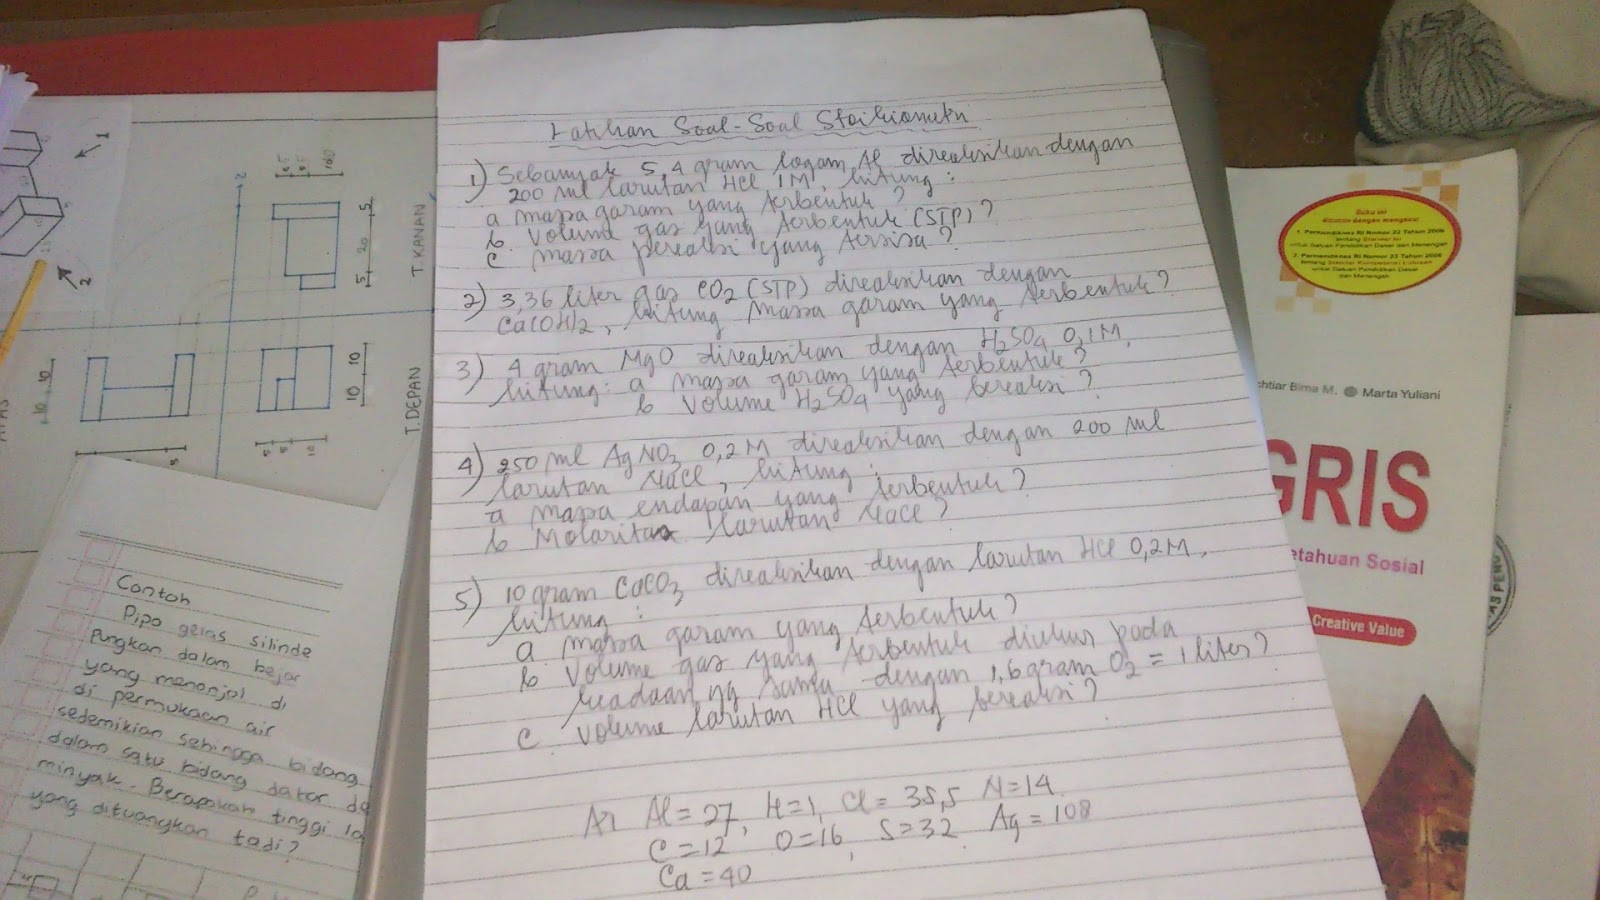 Latihan Soal-Soal Stoikiometri
1) Sebanyak 5,4 gram logam Al direaksikan dengan
200 ml larutan HCl 1M, hitung :
a massa garam yang terbentuk ?
b. Volume gas yang terbentuk (STP) ?
c. massa pereaksi yang tersisa ?
2) 3,36 liter gas CO2 (STP) direaksikan dengan
Ca(OH)2, hitung massa garam yang terbentuk ?
3) 4 gram MgO direaksikan dengan H2SO4 0,1M,
hitung : a massa garam yang terbentuk ?
b Volume H2SO4 yang bereaksi ?
4) 250 ml AgNO3 0,2 M direaksikan dengan 200 ml
larutan NaCl, hitung :
a massa endapan yang terbentuk ?
b Molaritas larutan NaCl ?
5) 10 gram CaCO3 direaksikan dengan larutan HCl 0,2M,
hitung :
a massa garam yang terbentuk ?
b Volume gas yang terbentuk diukur pada
keadaan yg sama dengan 1,6 gram O2 = 1 liter ?
c. Volume larutan HCl yang bereaksi ?
Ar Al = 27, H=1, Cl = 35,5 N=14
C = 12 O=16, S=32 Ag = 108
Ca = 40
1
2
5 20 5
T. KANAN
10 10
T. DEPAN
Contoh
Pipa gelas silinde
pungkan dalam bejar
yang menonjol di
di permukaan air
sedemikian sehingga bidang
dalam satu bidang datar da
minyak. Berapakah tinggi la
yang dituangkan tadi?
Buku ini
disusun dengan mengacu:
1. Permendiknas RI Nomor 22 Tahun 2006
tentang Standar Isi
untuk Satuan Pendidikan Dasar dan Menengah
2. Permendiknas RI Nomor 23 Tahun 2006
tentang Standar Kompetensi Lulusan
untuk Satuan Pendidikan Dasar
dan Menengah
chtiar Bima M. Marta Yuliani
GRIS
etahuan Sosial
Creative Value